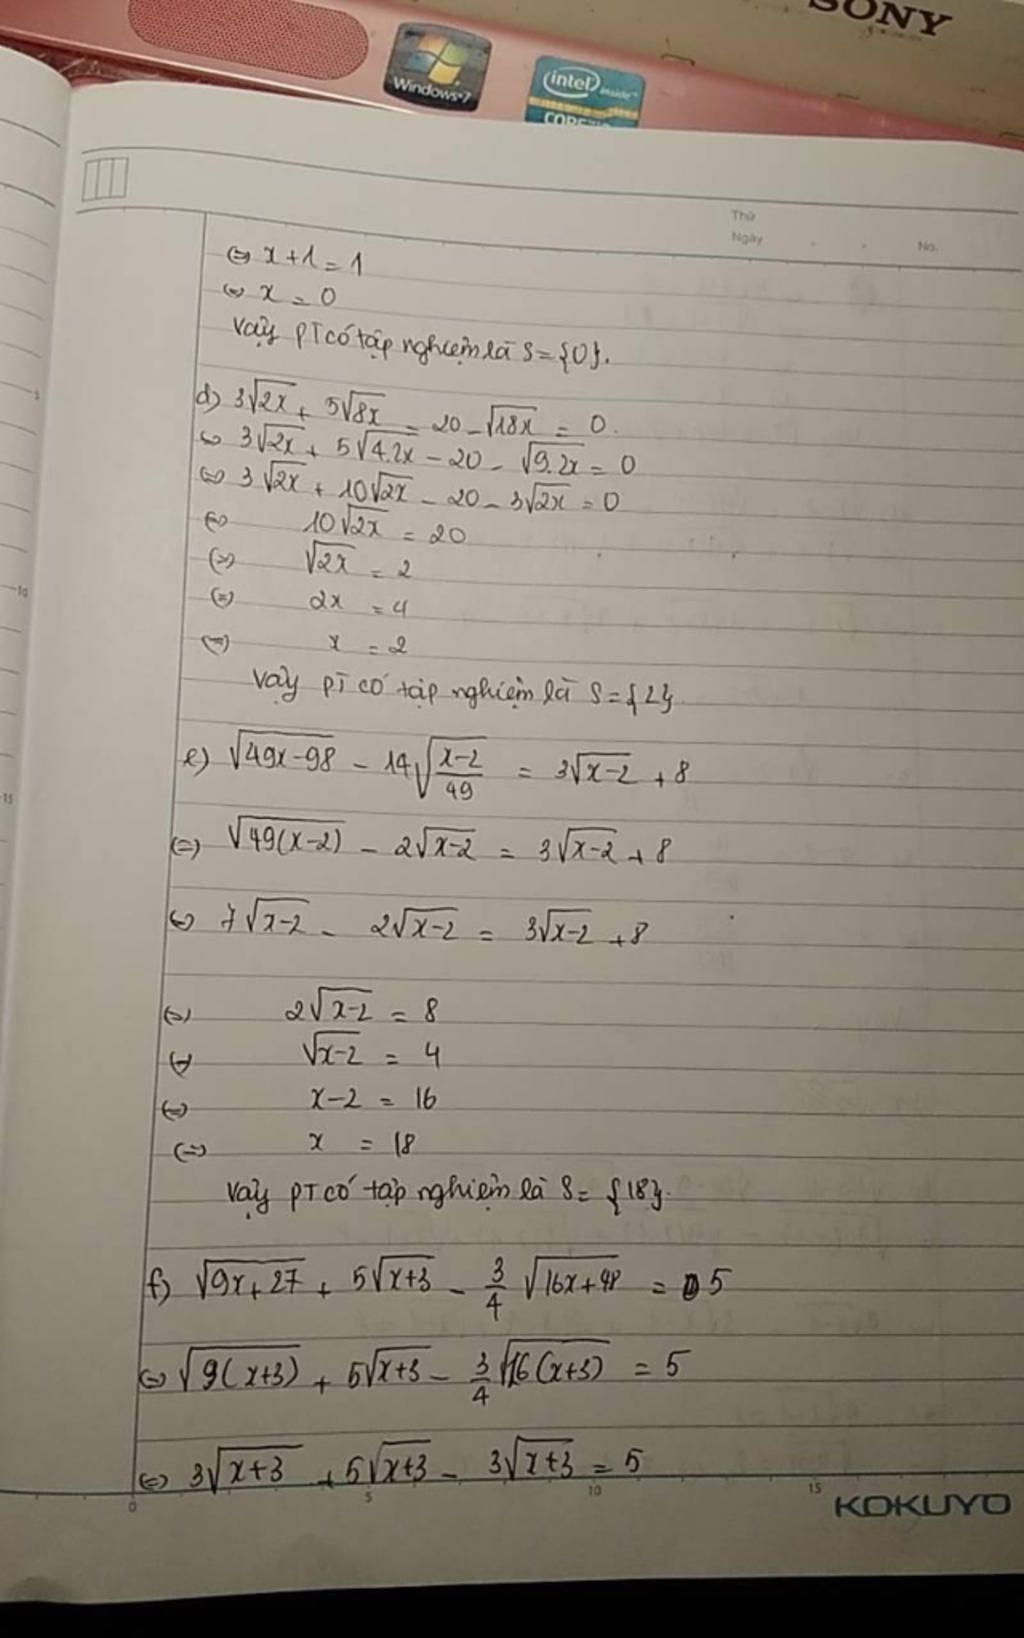 SONY
Windows 7
intel inside™
CORE
Thứ
Ngày
No.
⇔ x + 1 = 1
⇔ x = 0
Vậy PT có tập nghiệm là S = {0}.
d) 3√2x + 5√8x - 20 - √18x = 0.
⇔ 3√2x + 5√4.2x - 20 - √9.2x = 0
⇔ 3√2x + 10√2x - 20 - 3√2x = 0
⇔ 10√2x = 20
⇔ √2x = 2
⇔ 2x = 4
⇔ x = 2
Vậy PT có tập nghiệm là S = {2}
e) √(49x-98) - 14√((x-2)/49) = 3√(x-2) + 8
⇔ √(49(x-2)) - 2√(x-2) = 3√(x-2) + 8
⇔ 7√(x-2) - 2√(x-2) = 3√(x-2) + 8
⇔ 2√(x-2) = 8
⇔ √(x-2) = 4
⇔ x-2 = 16
⇔ x = 18
Vậy PT có tập nghiệm là S = {18}.
f) √(9x+27) + 5√(x+3) - 3/4 √(16x+48) = 5
⇔ √(9(x+3)) + 5√(x+3) - 3/4 √(16(x+3)) = 5
⇔ 3√(x+3) + 5√(x+3) - 3√(x+3) = 5
5
10
15
0 5 10 15
KOKUYO